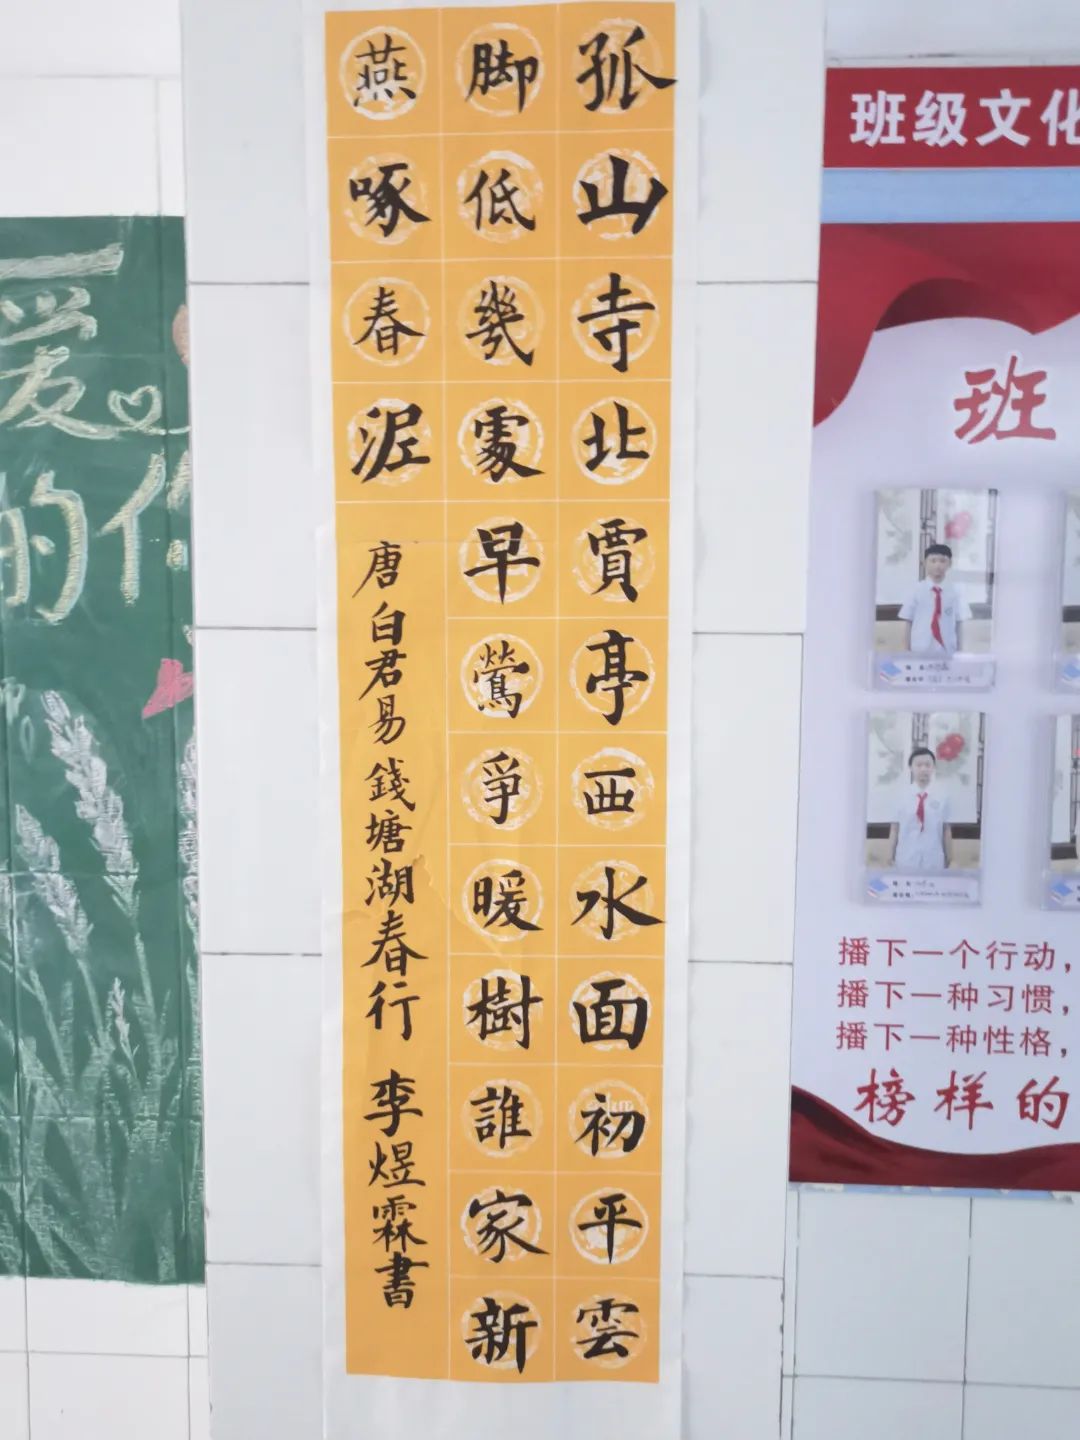 孤山寺北賈亭西水面初平雲
脚低幾處早鶯爭暖樹誰家新
燕啄春泥
唐白君易錢塘湖春行 李煜霖書
班级文化
班
播下一个行动，
播下一种习惯，
播下一种性格，
榜样的
爱
的你